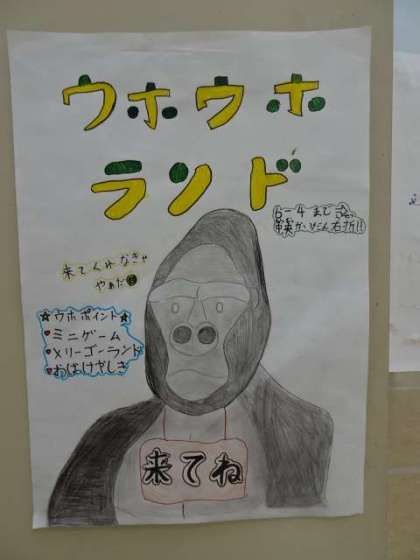 ウホウホ
ランド
6-4まで
かいだん右折!!
来てくれなきゃ
やぁだ
☆ウホポイント☆
ミニゲーム
メリーゴーランド
おばけやしき
来てね